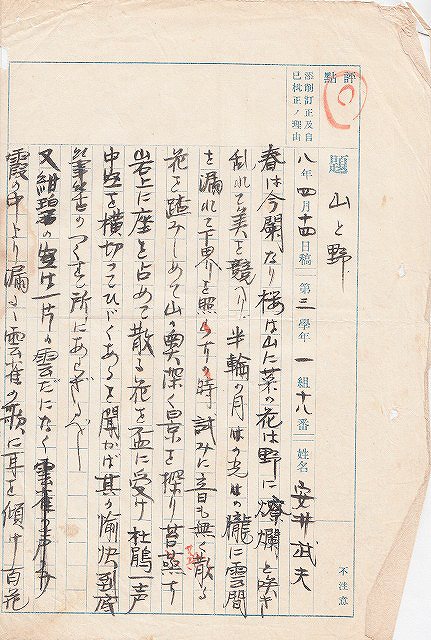 評點
C
添削訂正及自
已批正ノ理由
題 山と野
八年四月十四日稿 第三學年 一組十八番 姓名 安井武夫
不注意
春は今闌なり桜は山に菜の花は野に燎爛と咲き
乱れて美を競ひ 半輪の月は光は朧に雲間
を漏れて下界を照らすの時 試みに音も無く散る
花を踏みしめて山の奥深く景を探り苔蒸す
岩上に座を占めて散る花を盃に受け 杜鵑一声
中空を横切つてひゞくあるを聞かば其の愉快到底
筆舌のつくす所にあらざるべし
又紺碧の空は一片の雲だになく
霞の中より漏るゝ雲雀の歌に耳を傾け百花